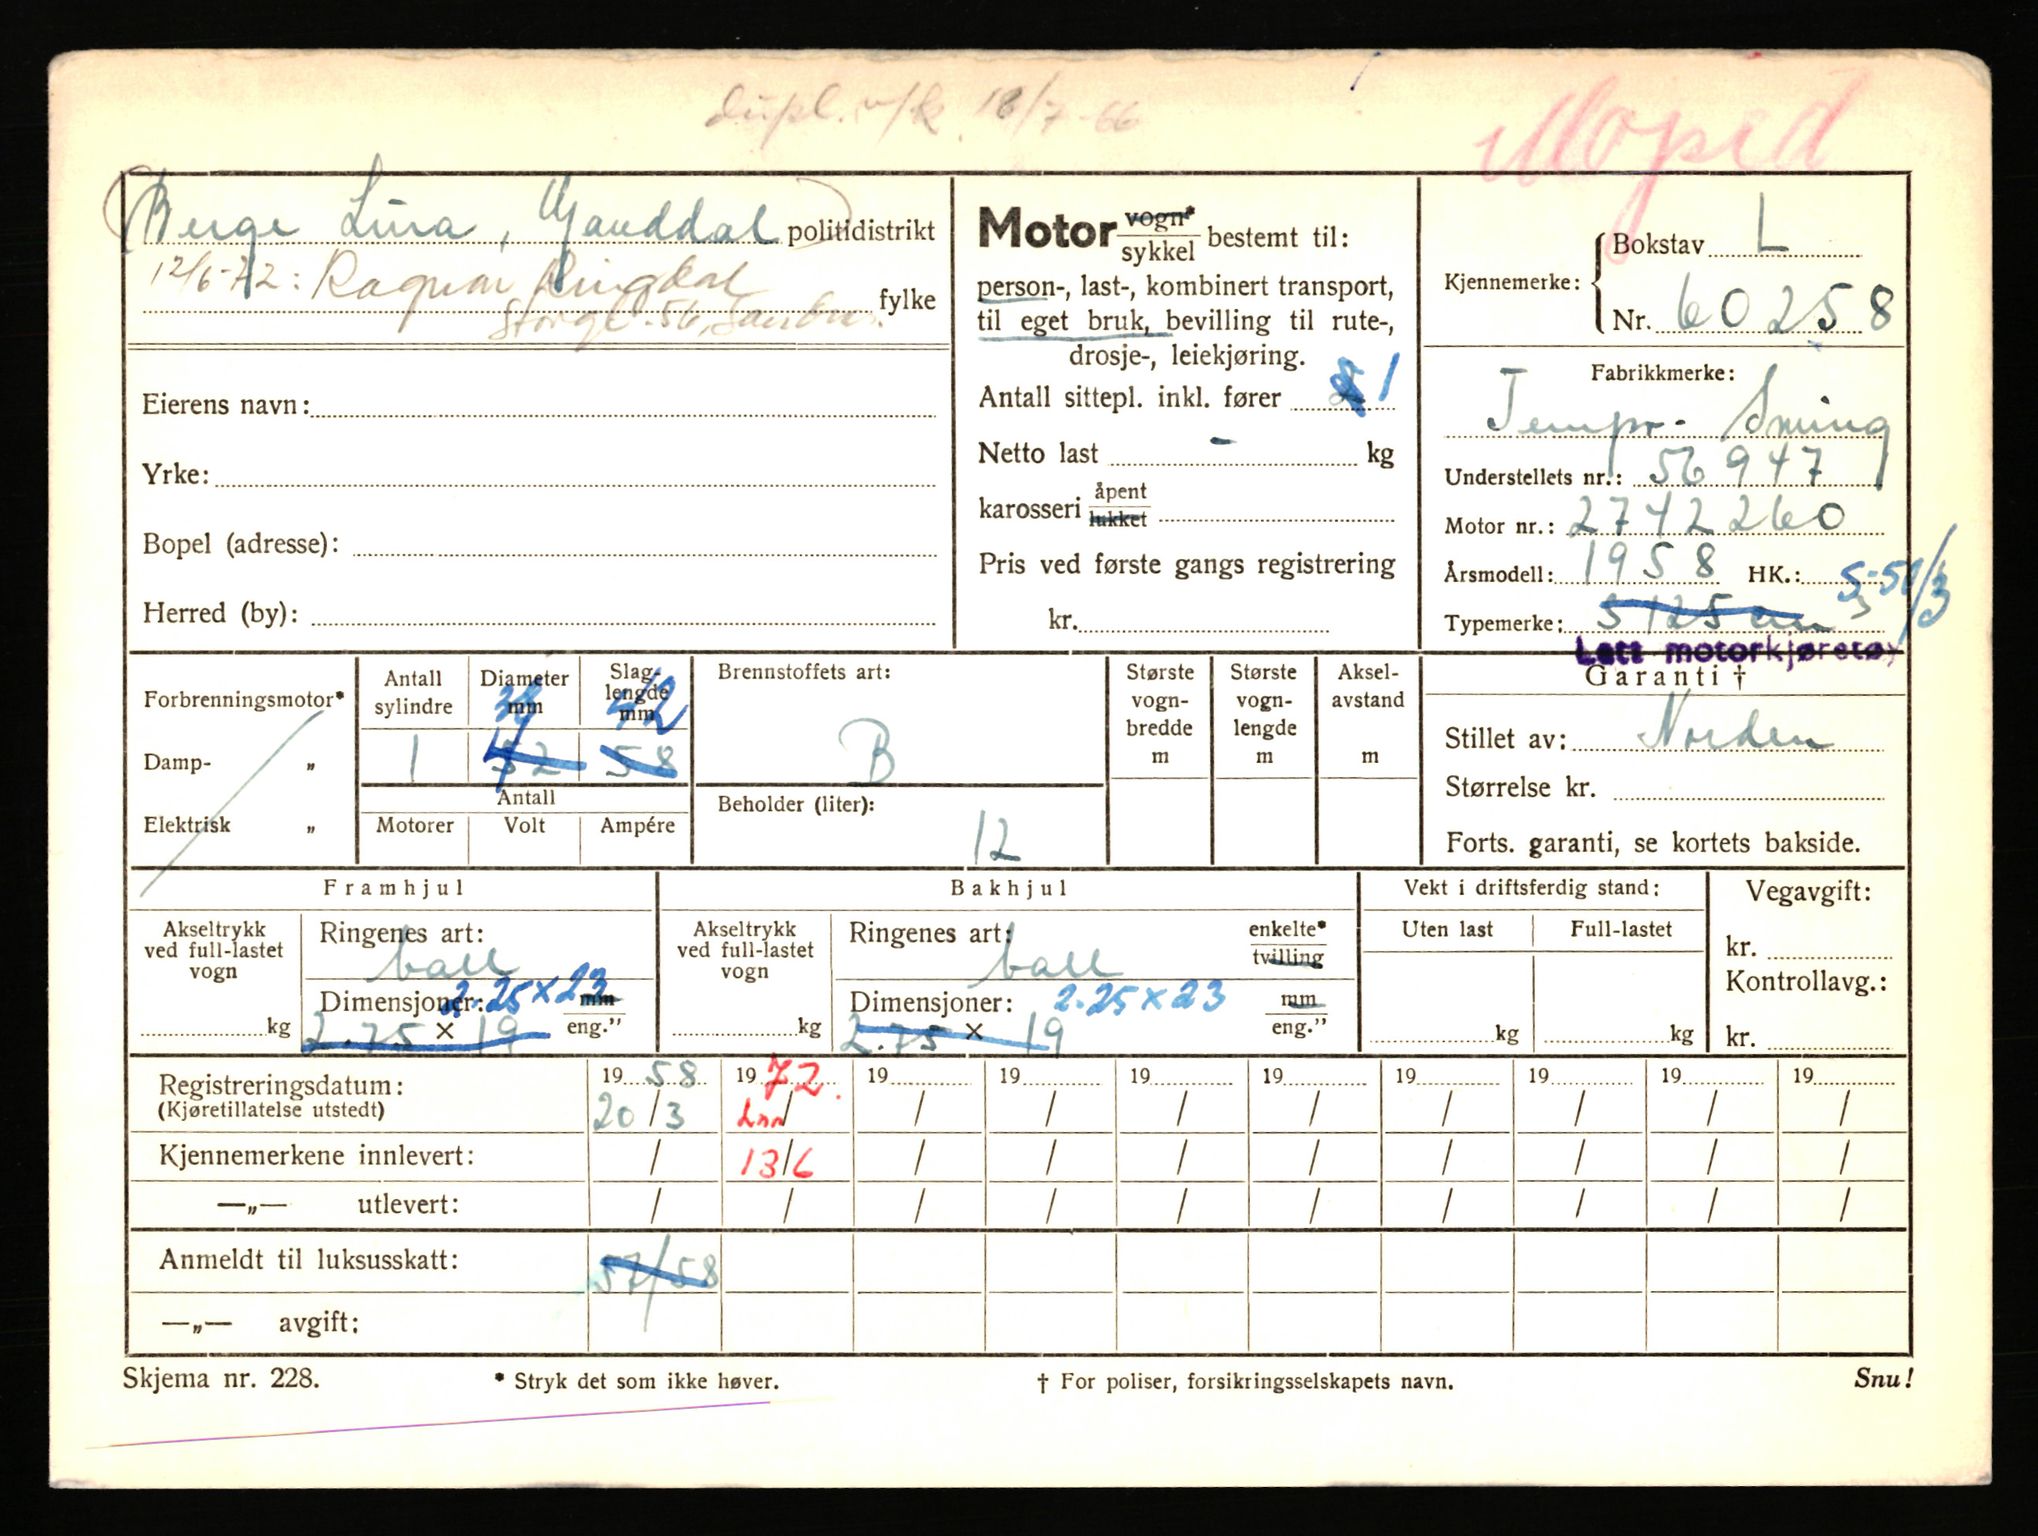 dupl. v/k. 18/7-66
Moped
Berge Lina, Ganddal politidistrikt
12/6-72: Ragnar Ringdal
Storgt. 56, Sandnes. fylke
Eierens navn:
Yrke:
Bopel (adresse):
Herred (by):
Motor vogn*
sykkel bestemt til:
person-, last-, kombinert transport,
til eget bruk, bevilling til rute-,
drosje-, leiekjøring.
Antall sittepl. inkl. fører 1
Netto last - kg
karosseri åpent
lukket
Pris ved første gangs registrering
kr.
Kjennemerke: Bokstav L
Nr. 60258
Fabrikkmerke:
Tempo- Swing
Understellets nr.: 56947
Motor nr.: 2742260
Årsmodell: 1958 HK.:
Typemerke: S 125 cm3 S-50/3
Lett motorkjøretøy
Forbrenningsmotor*
Damp- „
Elektrisk „
Antall sylindre 1
Diameter mm 52 38
Slaglengde mm 58 42
Antall
Motorer Volt Ampére
Brennstoffets art:
B
Beholder (liter):
12
Største vognbredde m
Største vognlengde m
Akselavstand m
Garanti †
Stillet av: Norden
Størrelse kr.
Forts. garanti, se kortets bakside.
Framhjul
Akseltrykk ved full-lastet vogn
kg
Ringenes art:
ball
Dimensjoner: 2.25 x 23 mm
2.75 x 19 eng."
Bakhjul
Akseltrykk ved full-lastet vogn
kg
Ringenes art: enkelte*
ball tvilling
Dimensjoner: 2.25 x 23 mm
2.75 x 19 eng."
Vekt i driftsferdig stand:
Uten last Full-lastet
kg kg
Vegavgift:
kr.
Kontrollavg.:
kr.
Registreringsdatum: 1958 1972. 19 19 19 19 19 19 19 19
(Kjøretillatelse utstedt) 20/3 / / / / / / / / /
Kjennemerkene innlevert: / 13/6 / / / / / / / /
—„— utlevert: / / / / / / / / / /
Anmeldt til luksusskatt: 57/58
—„— avgift:
Skjema nr. 228. * Stryk det som ikke høver. † For poliser, forsikringsselskapets navn. Snu!